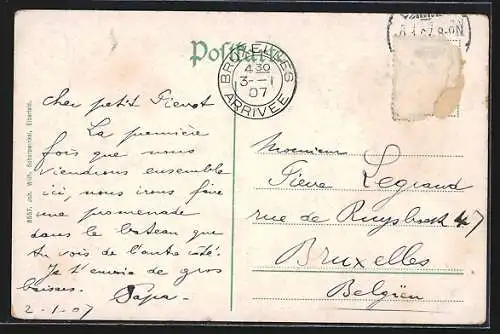 Postkarte
BRUXELLES
4 30
3--1
07
ARRIVEE
Cher petit Pierrot
La première
fois que nous
viendrons ensemble
ici, nous irons faire
une promenade
dans le bateau que
tu vois de l'autre côté.
Je t'envoie de gros
baisers. Papa-
2-1-07
Monsieur
Pierre Legrand
rue de Ruysbroek 47
Bruxelles
Belgïen
8657. Joh. Wilh.